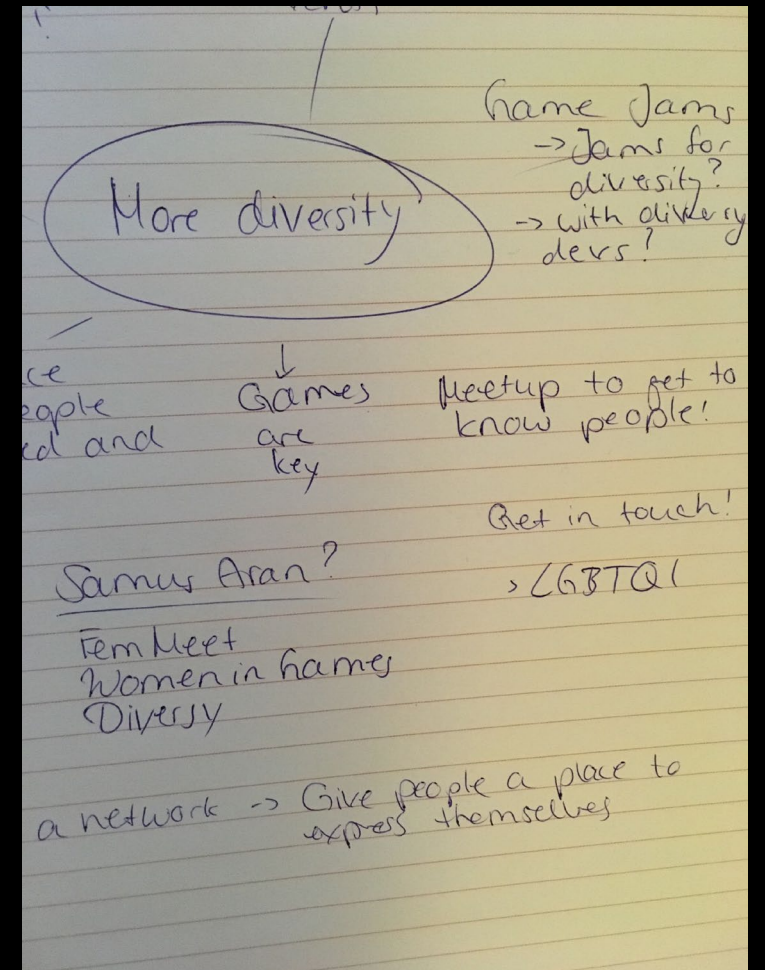 Game Jams
-> Jams for
diversity?
-> with diversy
devs?
More diversity
ce
eople
ed and
↓
Games
are
key
Meetup to get to
know people!
Get in touch!
> LGBTQI
Samus Aran?
Fem Meet
Women in Games
Diversy
a network -> Give people a place to
express themselves